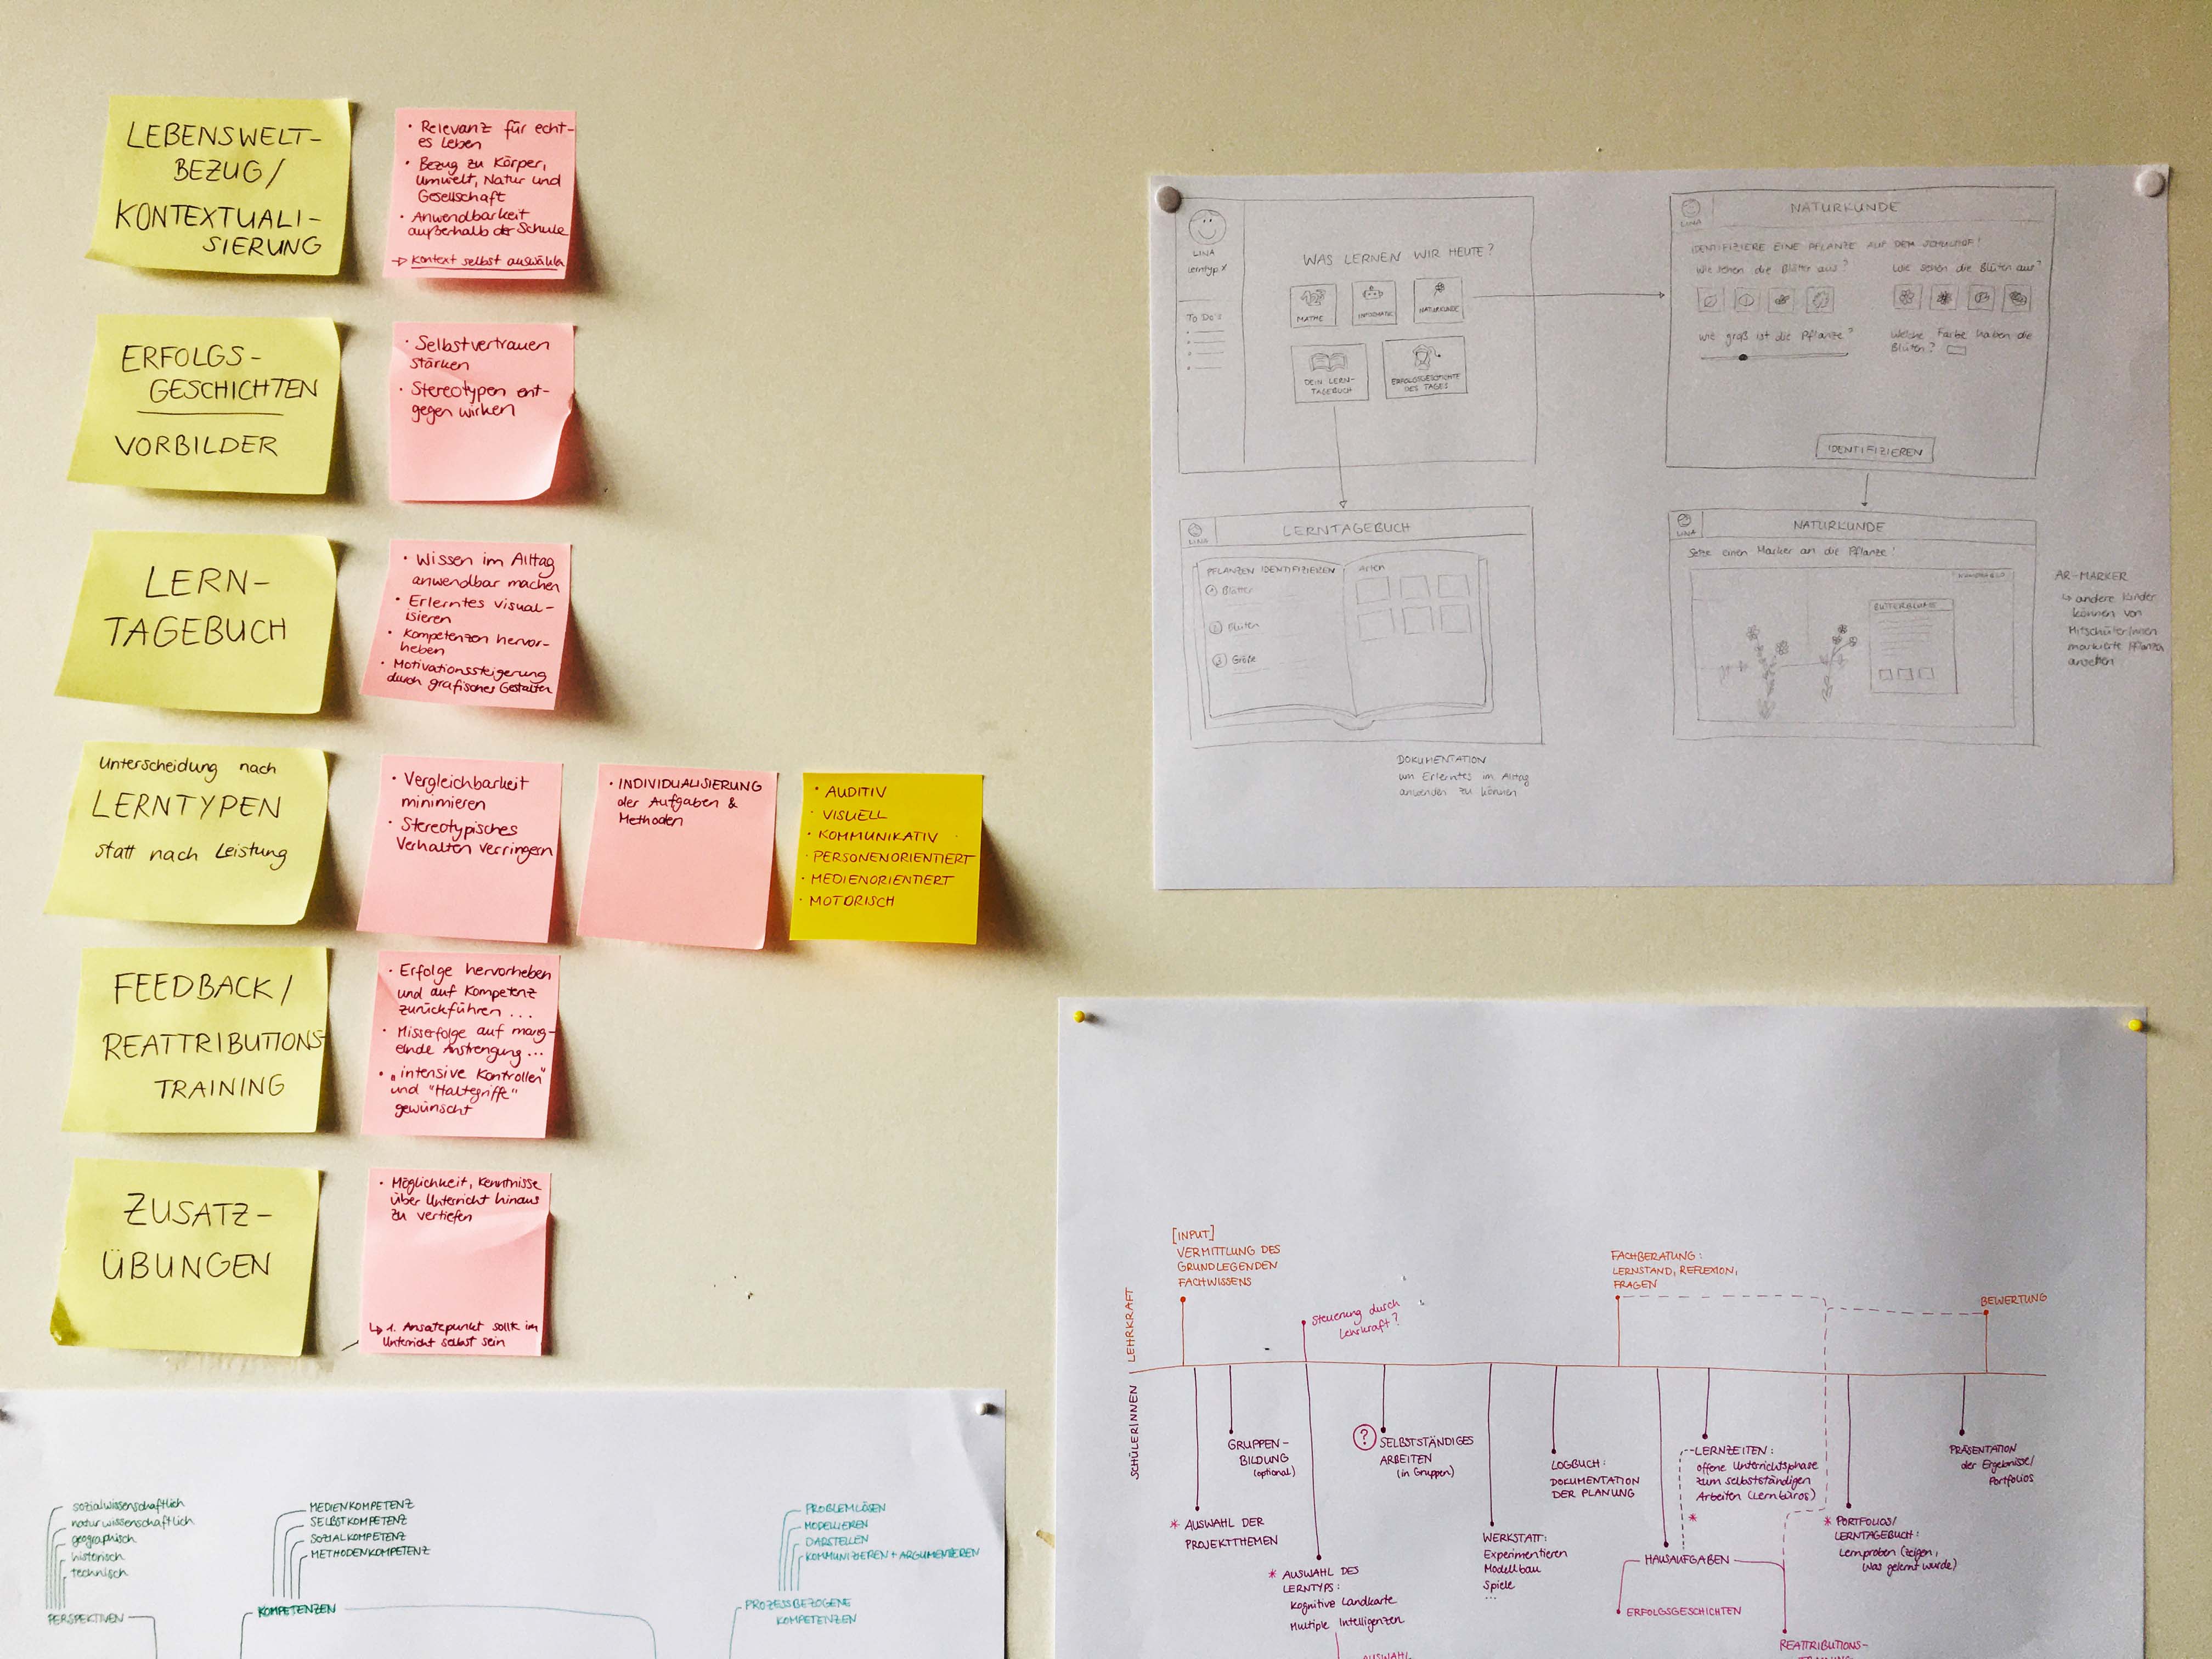 LEBENSWELT-
BEZUG/
KONTEXTUALI-
SIERUNG
• Relevanz für echt-
es Leben
• Bezug zu Körper,
Umwelt, Natur und
Gesellschaft
• Anwendbarkeit
außerhalb der Schule
→ Kontext selbst auswählen
ERFOLGS-
GESCHICHTEN
VORBILDER
• Selbstvertrauen
stärken
• Stereotypen ent-
gegen wirken
LERN-
TAGEBUCH
• Wissen im Alltag
anwendbar machen
• Erlerntes visual-
isieren
• Kompetenzen hervor-
heben
• Motivationssteigerung
durch grafisches Gestalten
Unterscheidung nach
LERNTYPEN
statt nach Leistung
• Vergleichbarkeit
minimieren
• Stereotypisches
Verhalten verringern
• INDIVIDUALISIERUNG
der Aufgaben &
Methoden
• AUDITIV
• VISUELL
• KOMMUNIKATIV
• PERSONENORIENTIERT
• MEDIENORIENTIERT
• MOTORISCH
FEEDBACK/
REATTRIBUTIONS-
TRAINING
• Erfolge hervorheben
und auf Kompetenz
zurückführen ...
• Misserfolge auf mang-
elnde Anstrengung ...
• „intensive Kontrollen"
und "Haltegriffe"
gewünscht
ZUSATZ-
ÜBUNGEN
• Möglichkeit, Kenntnisse
über Unterricht hinaus
zu vertiefen
↳ 1. Ansatzpunkt sollte im
Unterricht selbst sein
LINA
Lerntyp X
To Do's
WAS LERNEN WIR HEUTE?
MATHE
INFORMATIK
NATURKUNDE
DEIN LERN-
TAGEBUCH
ERFOLGSGESCHICHTE
DES TAGES
LINA
NATURKUNDE
IDENTIFIZIERE EINE PFLANZE AUF DEM SCHULHOF!
Wie sehen die Blätter aus?
Wie sehen die Blüten aus?
Wie groß ist die Pflanze?
Welche Farbe haben die
Blüten?
IDENTIFIZIEREN
LINA
LERNTAGEBUCH
PFLANZEN IDENTIFIZIEREN
① Blätter
② Blüten
③ Größe
Arten
DOKUMENTATION
um Erlerntes im Alltag
anwenden zu können
LINA
NATURKUNDE
Setze einen Marker an die Pflanze!
BUTTERBLUME
AR-MARKER
↳ andere Kinder
können von
Mitschüler/innen
markierte Pflanzen
ansehen
LEHRKRAFT
SCHÜLERINNEN
[INPUT]
VERMITTLUNG DES
GRUNDLEGENDEN
FACHWISSENS
Steuerung durch
Lehrkraft?
FACHBERATUNG:
LERNSTAND, REFLEXION,
FRAGEN
BEWERTUNG
* AUSWAHL DER
PROJEKTTHEMEN
GRUPPEN-
BILDUNG
(optional)
* AUSWAHL DES
LERNTYPS:
Kognitive Landkarte
Multiple Intelligenzen
AUSWAHL
? SELBSTSTÄNDIGES
ARBEITEN
(in Gruppen)
WERKSTATT:
Experimentieren
Modellbau
Spiele
...
LOGBUCH:
DOKUMENTATION
DER PLANUNG
LERNZEITEN:
offene Unterrichtsphase
zum selbstständigen
Arbeiten (Lernbüros)
*
HAUSAUFGABEN
ERFOLGSGESCHICHTEN
REATTRIBUTIONS-
* PORTFOLIOS/
LERNTAGEBUCH:
Lernproben (zeigen,
was gelernt wurde)
PRÄSENTATION
der Ergebnisse/
Portfolios
sozialwissenschaftlich
naturwissenschaftlich
geographisch
historisch
technisch
PERSPEKTIVEN
MEDIENKOMPETENZ
SELBSTKOMPETENZ
SOZIALKOMPETENZ
METHODENKOMPETENZ
KOMPETENZEN
PROBLEMLÖSEN
MODELLIEREN
DARSTELLEN
KOMMUNIZIEREN + ARGUMENTIEREN
PROZESSBEZOGENE
KOMPETENZEN